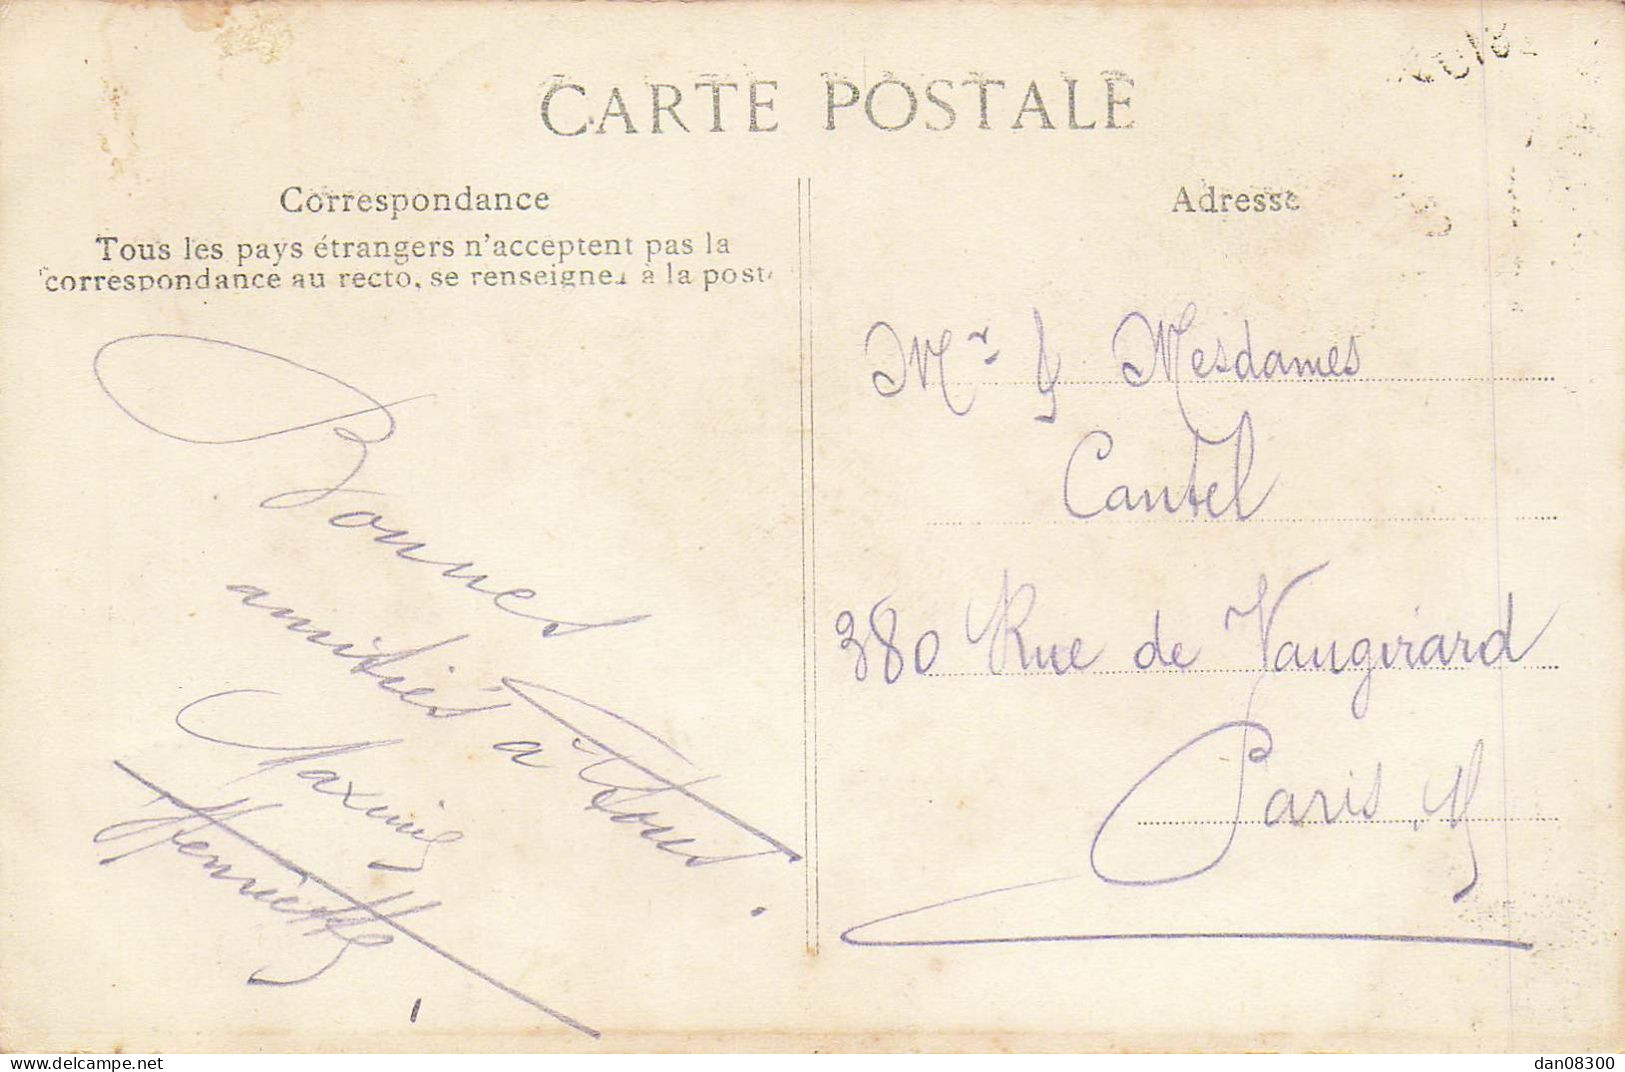 CARTE POSTALE
Correspondance
Tous les pays étrangers n'acceptent pas la
correspondance au recto, se renseigner à la poste
Bonnes
amitiés à tous.
Henriette
Adresse
Mr & Mesdames
Cantel
380 Rue de Vaugirard
Paris
dan08300